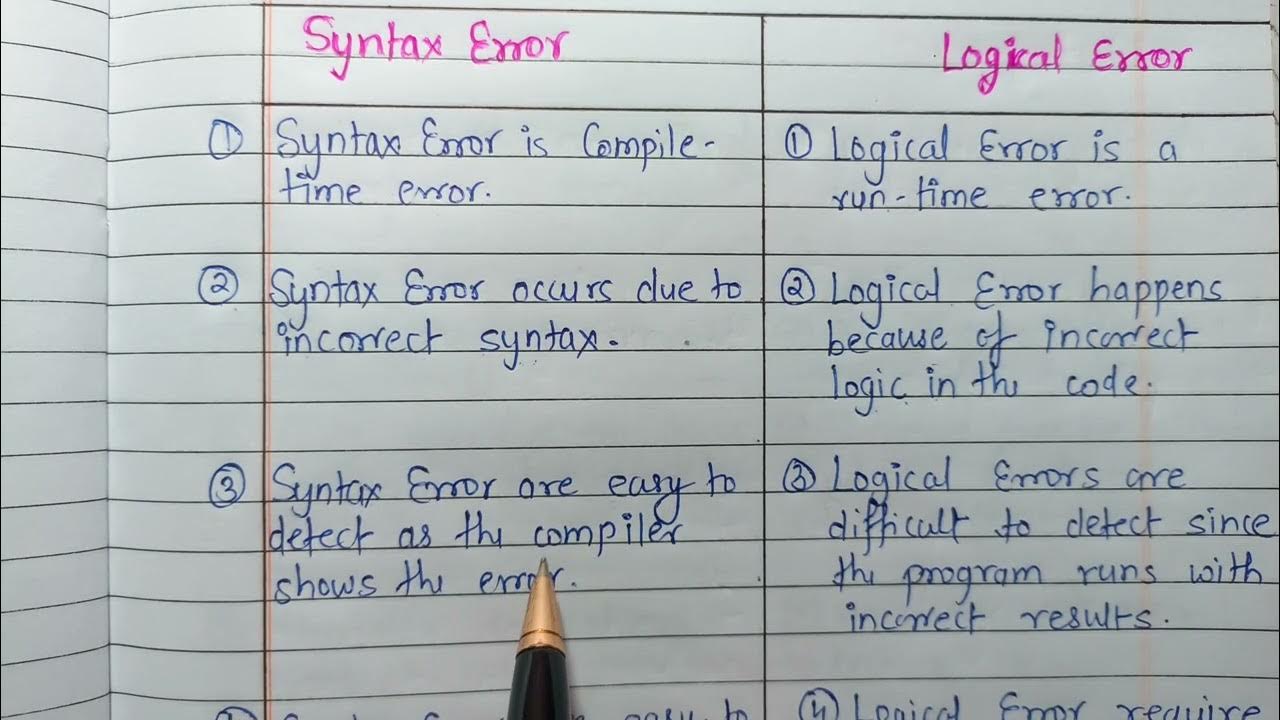 Syntax Error
Logical Error
① Syntax Error is Compile-
time error.
① Logical Error is a
run-time error.
② Syntax Error occurs due to
incorrect syntax.
② Logical Error happens
because of incorrect
logic in the code.
③ Syntax Error are easy to
detect as the compiler
shows the error.
③ Logical Errors are
difficult to detect since
the program runs with
incorrect results.
easy to
④ Logical Error require